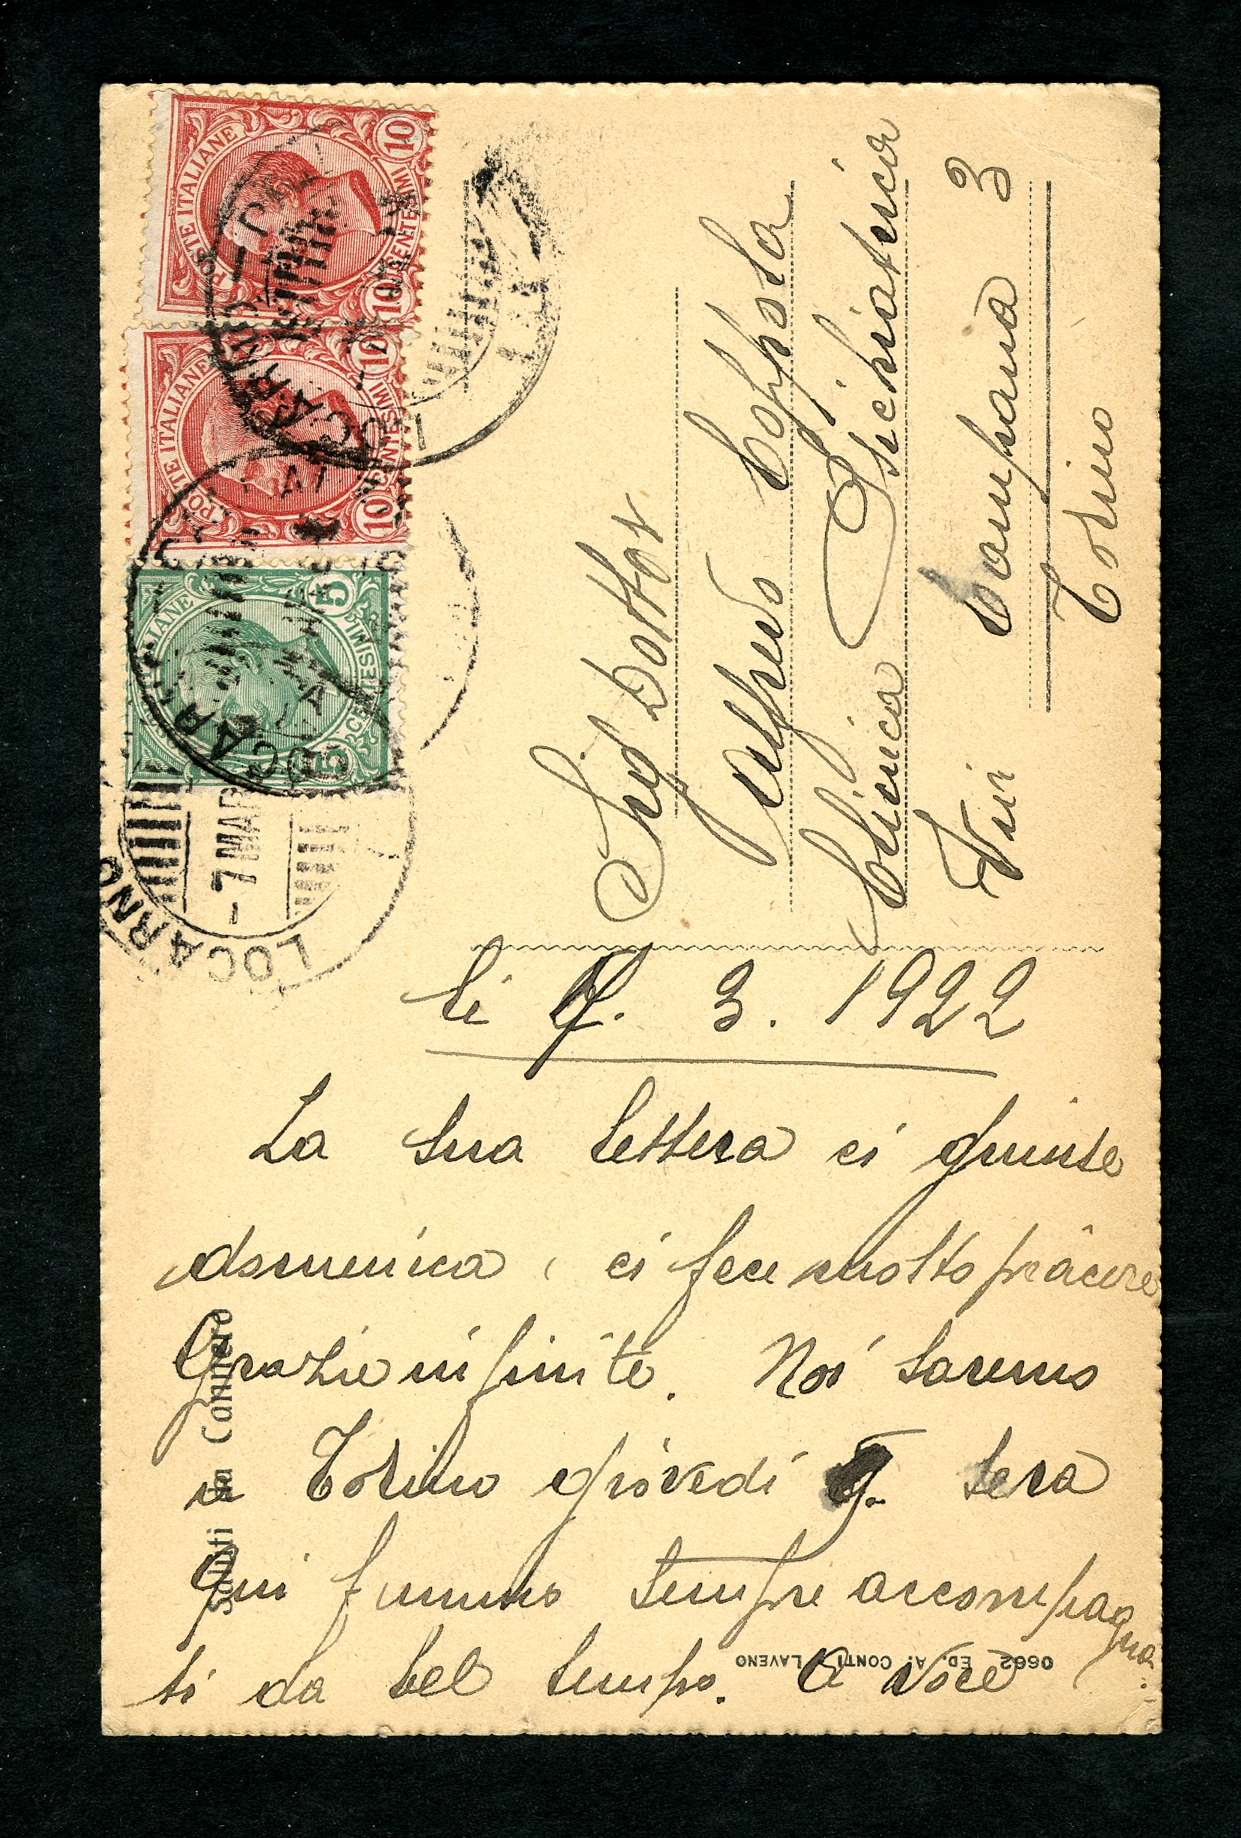 POSTE ITALIANE
10 CENTESIMI 10
POSTE ITALIANE
10 CENTESIMI 10
5 CENTESIMI 5
LOCARNO
LOCARNO
-7 MAR
LOCARNO
Sig Dottor
Alfredo Coppola
Clinica Psichiatrica
Via Campana 3
Torino
li 7. 3. 1922
La sua lettera ci giunse
domenica, ci fece molto piacere
Grazie infinite. Noi saremo
a Torino giovedì 9. sera
Qui fummo sempre accompagna
ti da bel tempo. A voce
Saluti da Cannero
0662 ED. A. CONTI - LAVENO